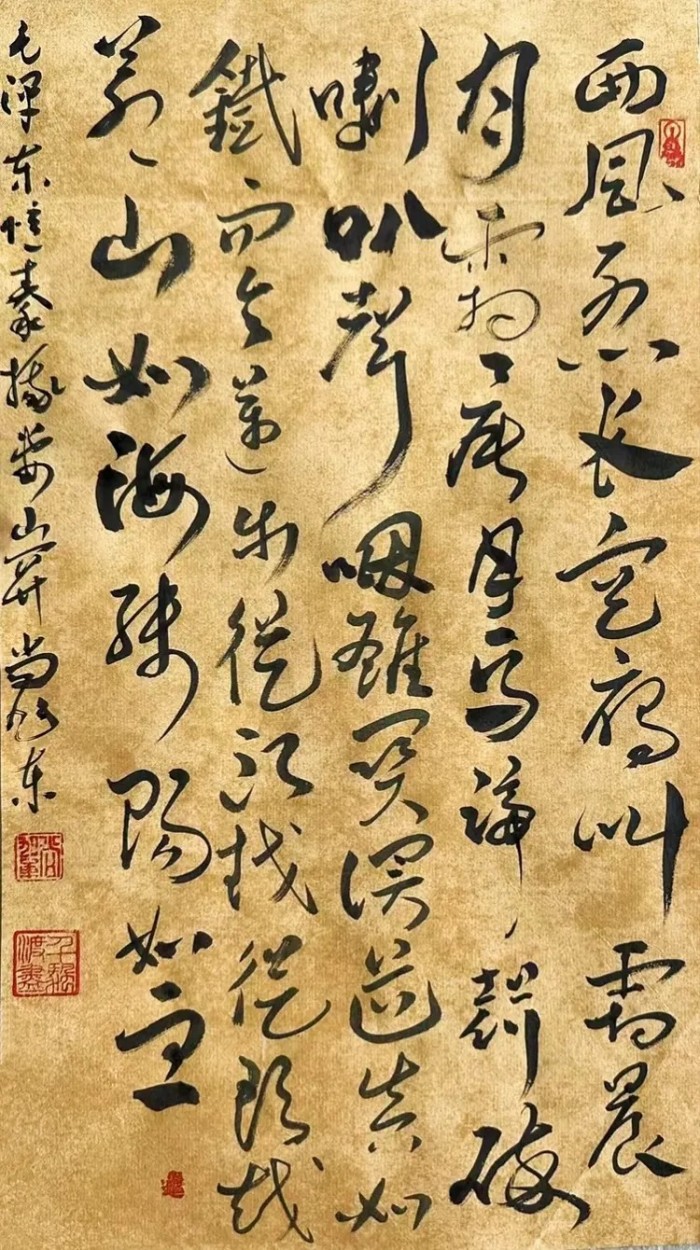 西風烈長空雁叫霜晨
月霜晨月馬蹄聲碎
喇叭聲咽雄關漫道真如
鐵而今邁步從頭越從頭越
蒼山如海殘陽如血
毛澤东憶秦娥婁山関尚东